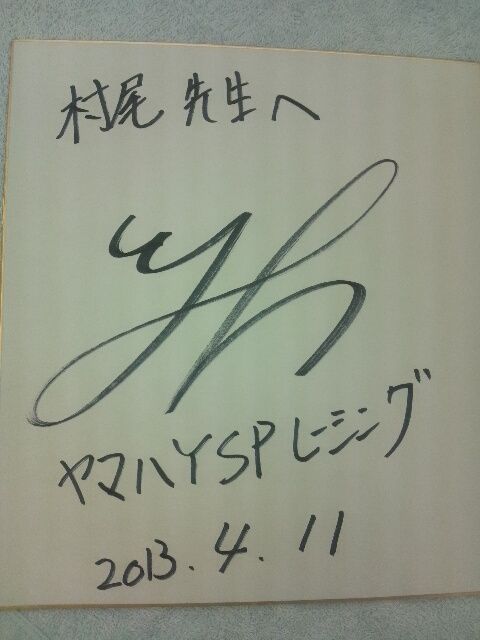 村尾 先生へ
ヤマハYSPレーシング
2013.4.11